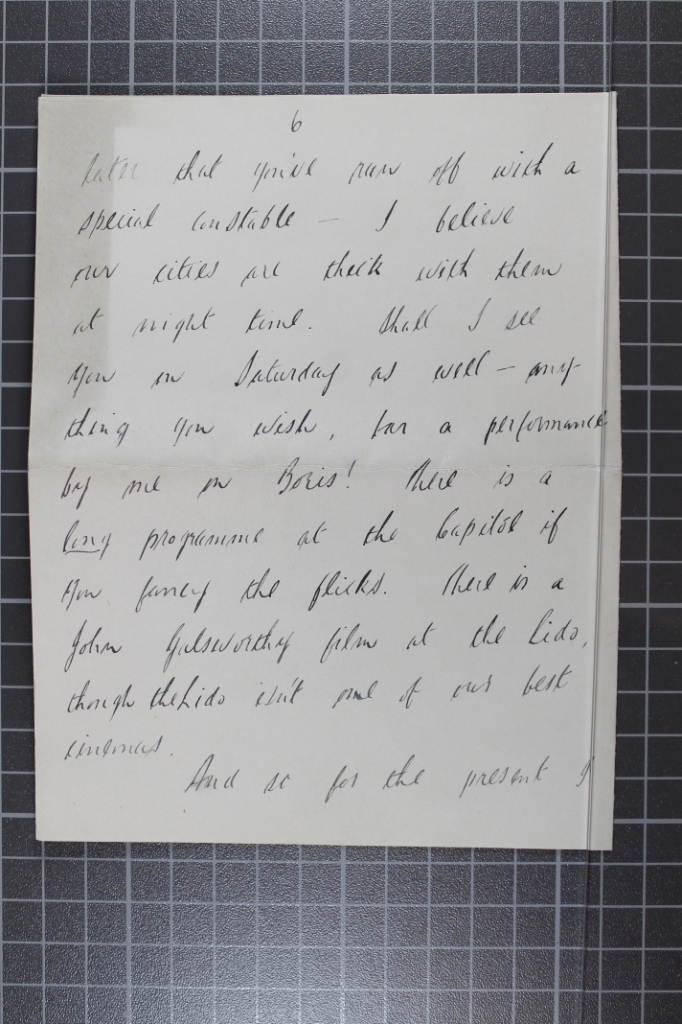 6
later that you've run off with a
special constable — I believe
our cities are thick with them
at night time. Shall I see
you on Saturday as well — any-
thing you wish, bar a performance
by me on Boris! There is a
long programme at the Capitol if
you fancy the flicks. There is a
John Galsworthy film at the Lido,
though the Lido isn't one of our best
cinemas.
And so for the present I